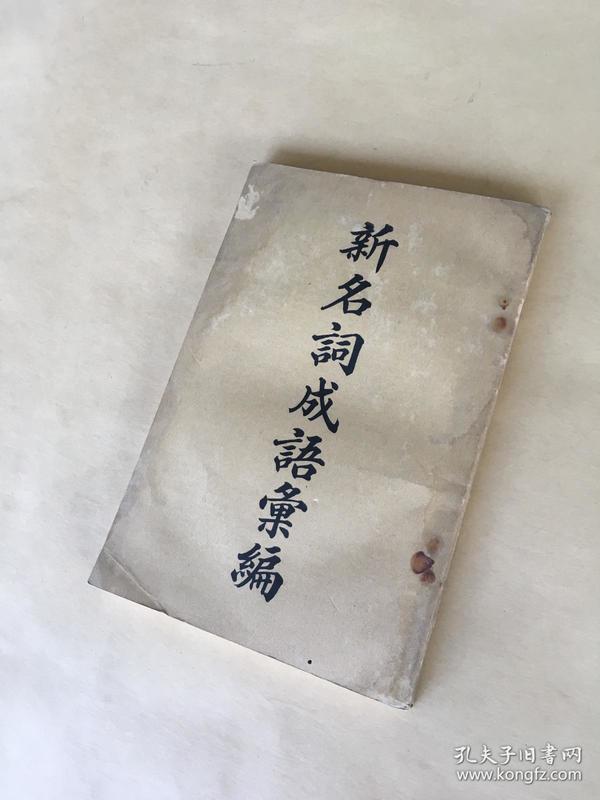 新名詞成語彙編
孔夫子旧書网
www.kongfz.com